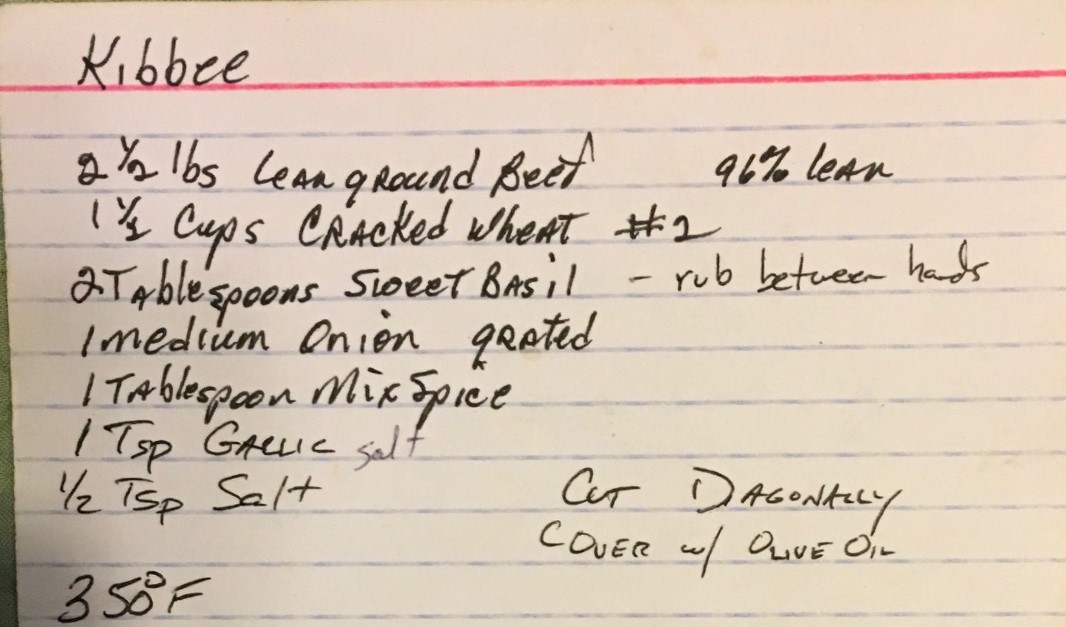 Kibbee
2 1/2 lbs Lean ground Beef 96% lean
1 1/2 Cups Cracked Wheat #2
2 Tablespoons Sweet Basil - rub between hands
1 medium Onion grated
1 Tablespoon Mix Spice
1 Tsp Garlic salt
1/2 Tsp Salt
Cut Dagonally
Cover w/ Olive Oil
350°F